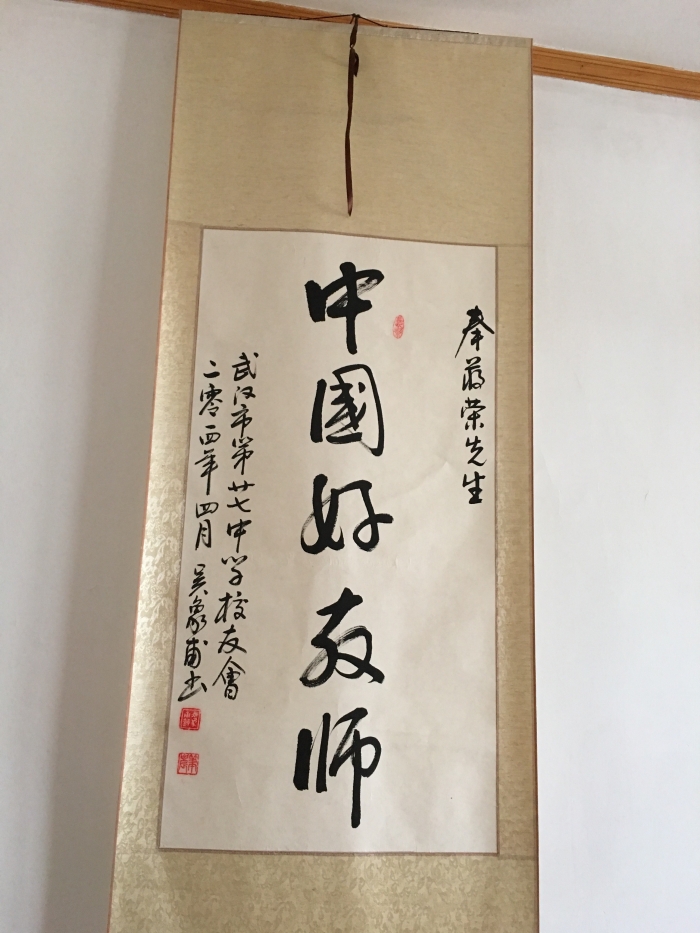 奉蒋荣先生
中國好教师
武汉市第廿七中学校友會
二零四年四月 吴象甫书